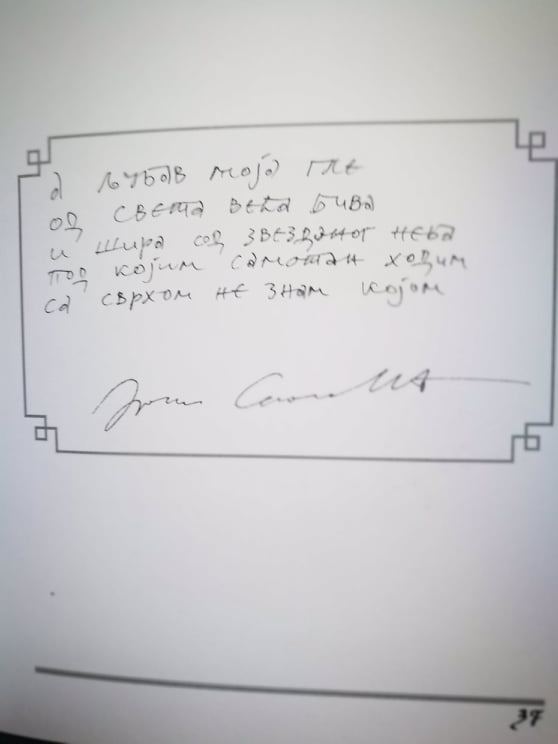 а љубав моја гле
од света већа бива
и шира од звезданог неба
под којим самотан ходим
са сврхом не знам којом
37